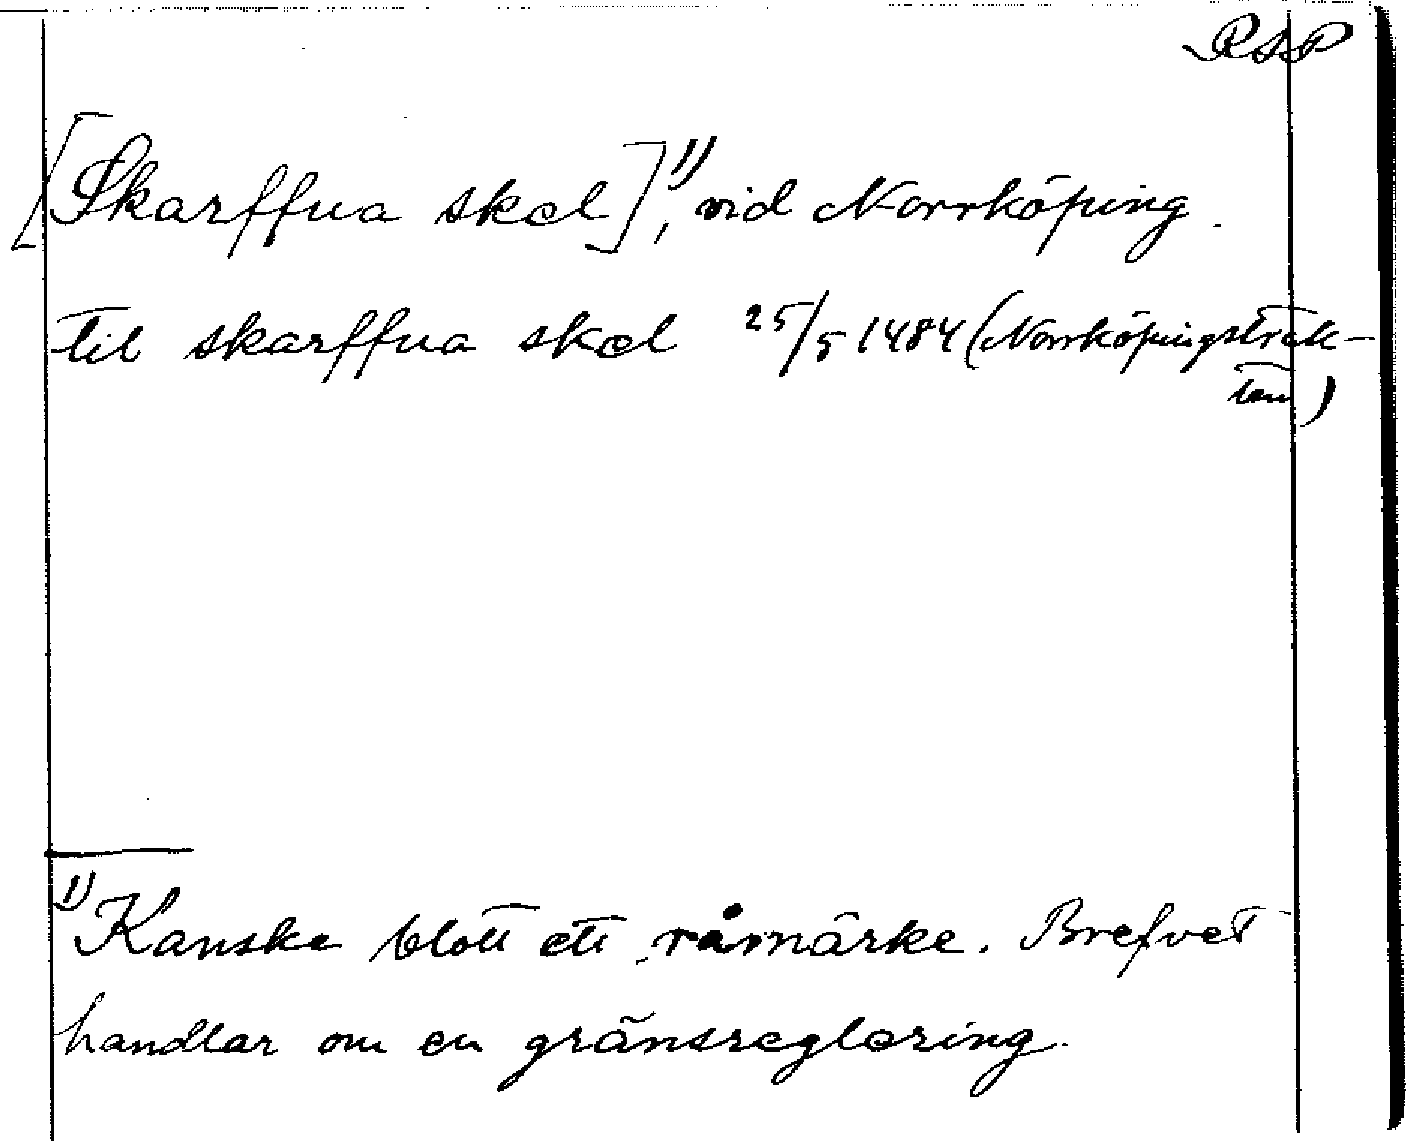 RSP
[Skarffua skæl]¹⁾, vid Norrköping.
til skarffua skæl 25/5 1484 (Norrköpingstrak-
ten)
¹⁾ Kanske blott ett råmärke. Brefvet
handlar om en gränsreglering.